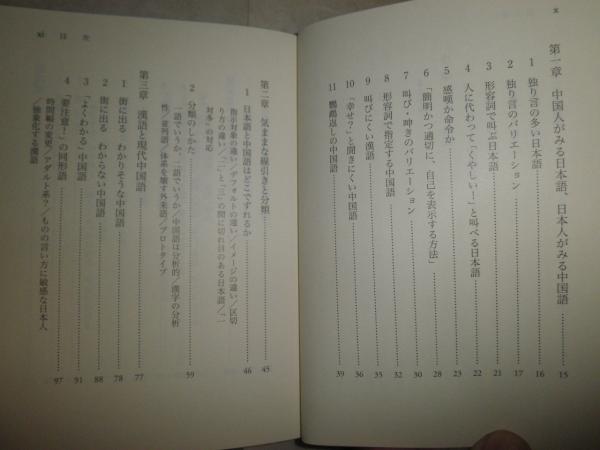 x
第一章 中国人がみる日本語、日本人がみる中国語……15
1 独り言の多い日本語……16
2 独り言のバリエーション……17
3 形容詞で叫ぶ日本語……21
4 人に代わって「くやしい!」と叫べる日本語……22
5 感嘆か命令か……23
6 「簡明かつ適切に、自己を表示する方法」……28
7 叫び・呻きのバリエーション……30
8 形容詞で指定する中国語……32
9 叫びにくい漢語……35
10 「幸せ?」と聞きにくい中国語……36
11 鸚鵡返しの中国語……39
xi 目次
第二章 気ままな線引きと分類……45
1 日本語と中国語はどこでずれるか……46
指示対象の違い/デフォルトの違い/イメージの違い/区切
り方の違い/「一」と「二」の間に切れ目のある日本語/「一
対多」の対応
2 分類のしかた……59
一語でいうか、二語でいうか/中国語は分析的/漢字の分析
性/並列語/体系を壊す外来語/プロトタイプ
第三章 漢語と現代中国語……77
1 街に出る わかりそうな中国語……78
2 街に出る わからない中国語……88
3 「よくわかる」中国語……91
4 「要注意!」の同形語……97
時間幅の変更/アダルト系?/ものの言い方に敏感な日本人
/抽象化する漢語